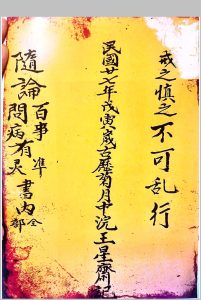 戒之慎之不可乱行
民國廿七年戊寅歲古曆菊月中浣王星齋
隨論百事準
問病有灵
書內全部